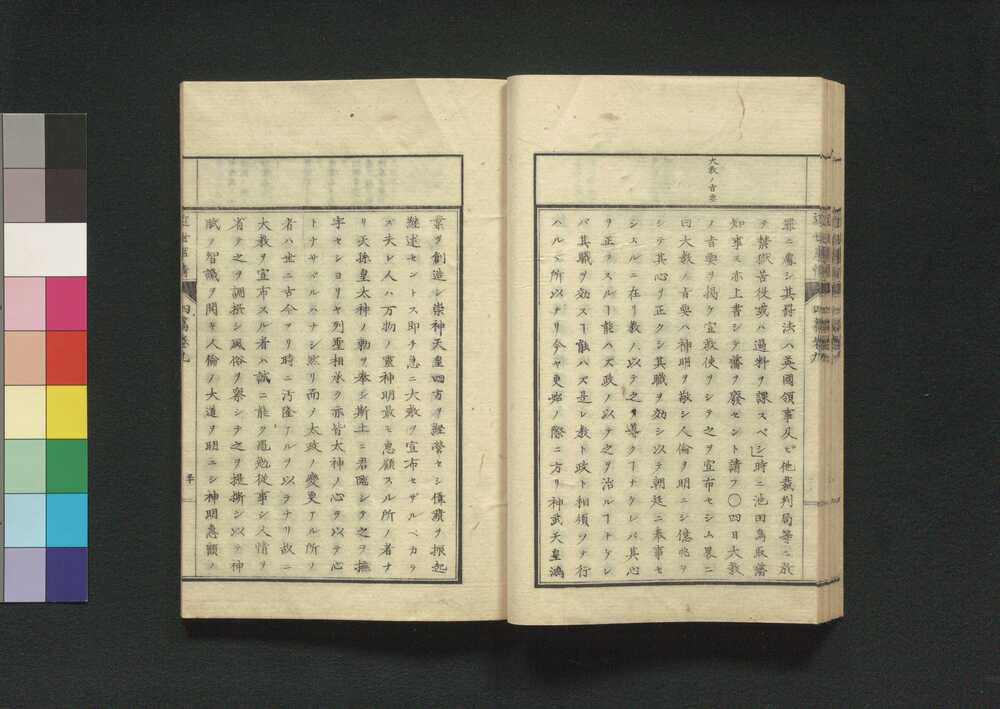 大教ノ旨要
罪ニ處シ其罰法ハ英國領事及ヒ他裁判局等ニ於
テ禁獄苦役或ハ過料ヲ課スベシ」時ニ池田鳥取藩
知事又亦上書シテ藩ヲ廢セント請フ〇四日大教
ノ旨要ヲ掲ケ宣教使ヲシテ之ヲ宣布セシム畧ニ
曰大教ノ旨要ハ神明ヲ敬シ人倫ヲ明ニシ億兆ヲ
シテ其心ヲ正クシ其職ヲ効シ以テ朝廷ニ奉事セ
シムルニ在リ教ノ以テ之ヲ導クヿナケレバ其心
ヲ正フスルヿ能ハズ政ノ以テ之ヲ治ルヿナケレ
バ其職ヲ効スヿ能ハズ是レ教ト政ト相須ツテ行
ハルヽ所以ナリ今ヤ更始ノ際ニ方リ神武天皇鴻
業ヲ創造シ崇神天皇四方ヲ經營セシ偉績ヲ振起
繼述セントス即チ急ニ大教ヲ宣布セザルベカラ
ズ夫レ人ハ万物ノ靈神明最モ惠顧スル所ノ者ナ
リ天孫皇太神ノ勅ヲ奉シ斯土ニ君臨シテ之ヲ撫
字セシヨリ以來列聖相承ク亦皆太神ノ心ヲ以テ心
トナサヾルハナシ然リ而ノ太政ノ變更アル所ノ
者ハ世ニ古今アリ時ニ汚隆アルヲ以テナリ故ニ
大教ヲ宣布スル者ハ誠ニ能ク黽勉從事シ人情ヲ
省テ之ヲ調攝シ風俗ヲ察シテ之ヲ提撕シ以テ神
賦ノ智識ヲ開キ人倫ノ大道ヲ明ニシ神明惠顧ノ
四篇卷九